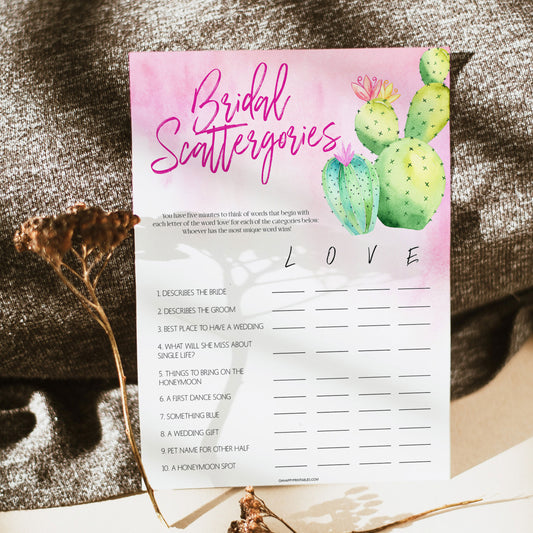 Bridal
Scattergories
You have five minutes to think of words that begin with
each letter of the word 'love' for each of the categories below.
Whoever has the most unique word wins!
L O V E
1. DESCRIBES THE BRIDE
2. DESCRIBES THE GROOM
3. BEST PLACE TO HAVE A WEDDING
4. WHAT WILL SHE MISS ABOUT
SINGLE LIFE?
5. THINGS TO BRING ON THE
HONEYMOON
6. A FIRST DANCE SONG
7. SOMETHING BLUE
8. A WEDDING GIFT
9. PET NAME FOR OTHER HALF
10. A HONEYMOON SPOT
OHHAPPYPRINTABLES.COM